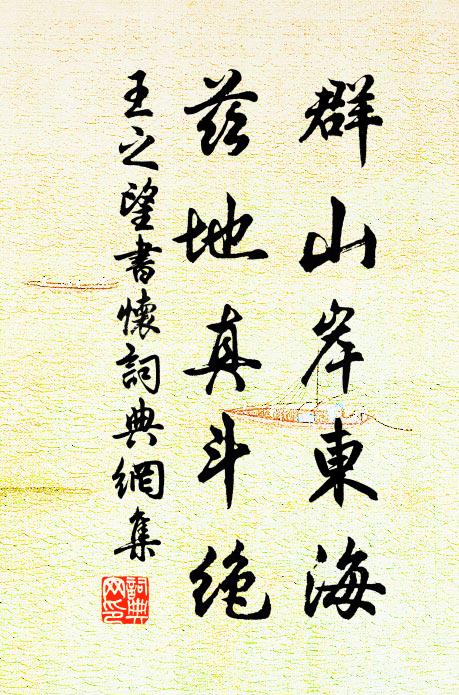 群山岸東海
茲地真斗絕
王之望書懷詞典網集
詞典網印